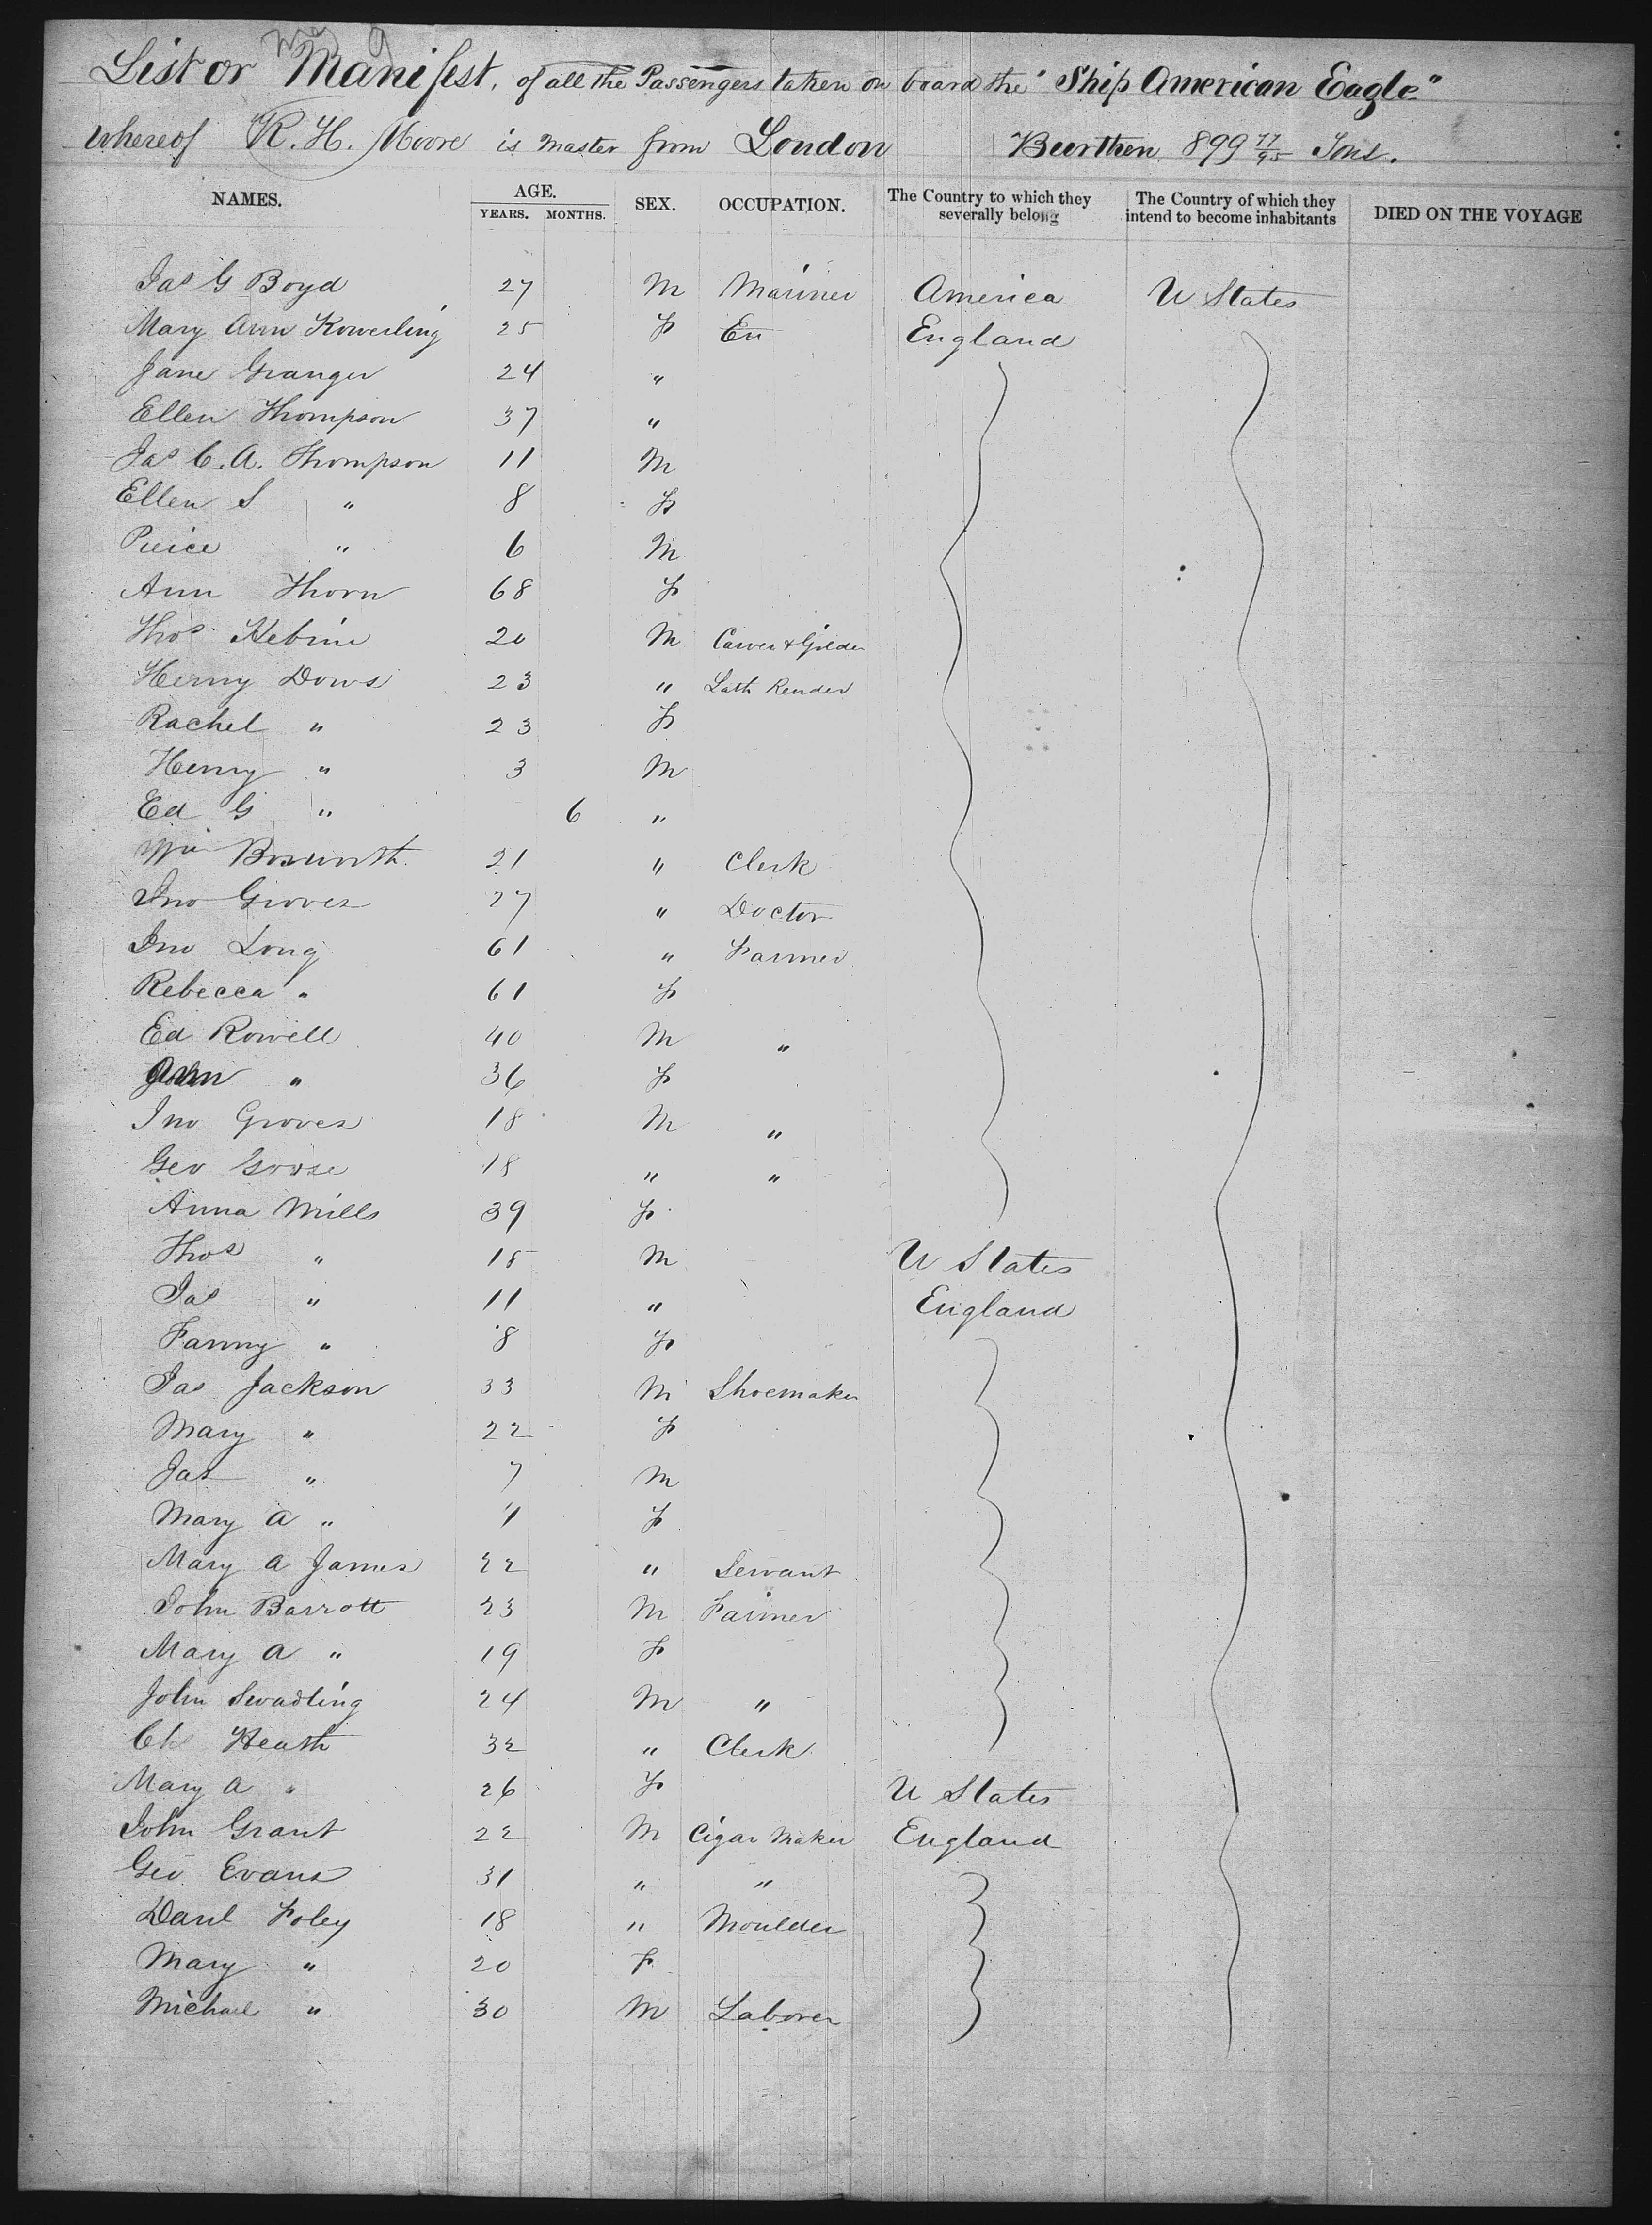 List or Manifest, of all the Passengers taken on board the "Ship American Eagle"
whereof R. H. Moore is master from London Burthen 899 77/95 Tons.
NAMES. AGE. YEARS. MONTHS. SEX. OCCUPATION. The Country to which they severally belong The Country of which they intend to become inhabitants DIED ON THE VOYAGE
Jas G Boyd 27 M Mariner America U States
Mary Ann 25 F England
Jane Granger 24 "
Ellen Thompson 37 "
Jas C. A. Thompson 11 M
Ellen S " 8 F
" 6 M
Ann Thorn 68 F
Thos 20 M Carver & Gilder
Henry Dows 23 " Lath Render
Rachel " 23 F
Henry " 3 M
Ed G " 6 "
Wm Bosworth 21 " Clerk
Jno Groves 27 " Doctor
Jno Long 61 " Farmer
Rebecca " 61 F
Ed Rowell 40 M "
Ann " 36 F
Jno Groves 18 M "
Geo Goose 18 " "
Anna Mills 39 F
Thos " 15 M U States
Jas " 11 " England
Fanny " 8 F
Jas Jackson 33 M Shoemaker
Mary " 22 F
Jas " 7 M
Mary A " 4 F
Mary A James 22 " Servant
John Barrott 23 M Farmer
Mary A " 19 F
John Swadling 24 M "
Chs Heath 32 " Clerk
Mary A " 26 F U States
John Grant 22 M Cigar Maker England
Geo Evans 31 " "
Danl Foley 18 " Moulder
Mary " 20 F
Michael " 30 M Laborer